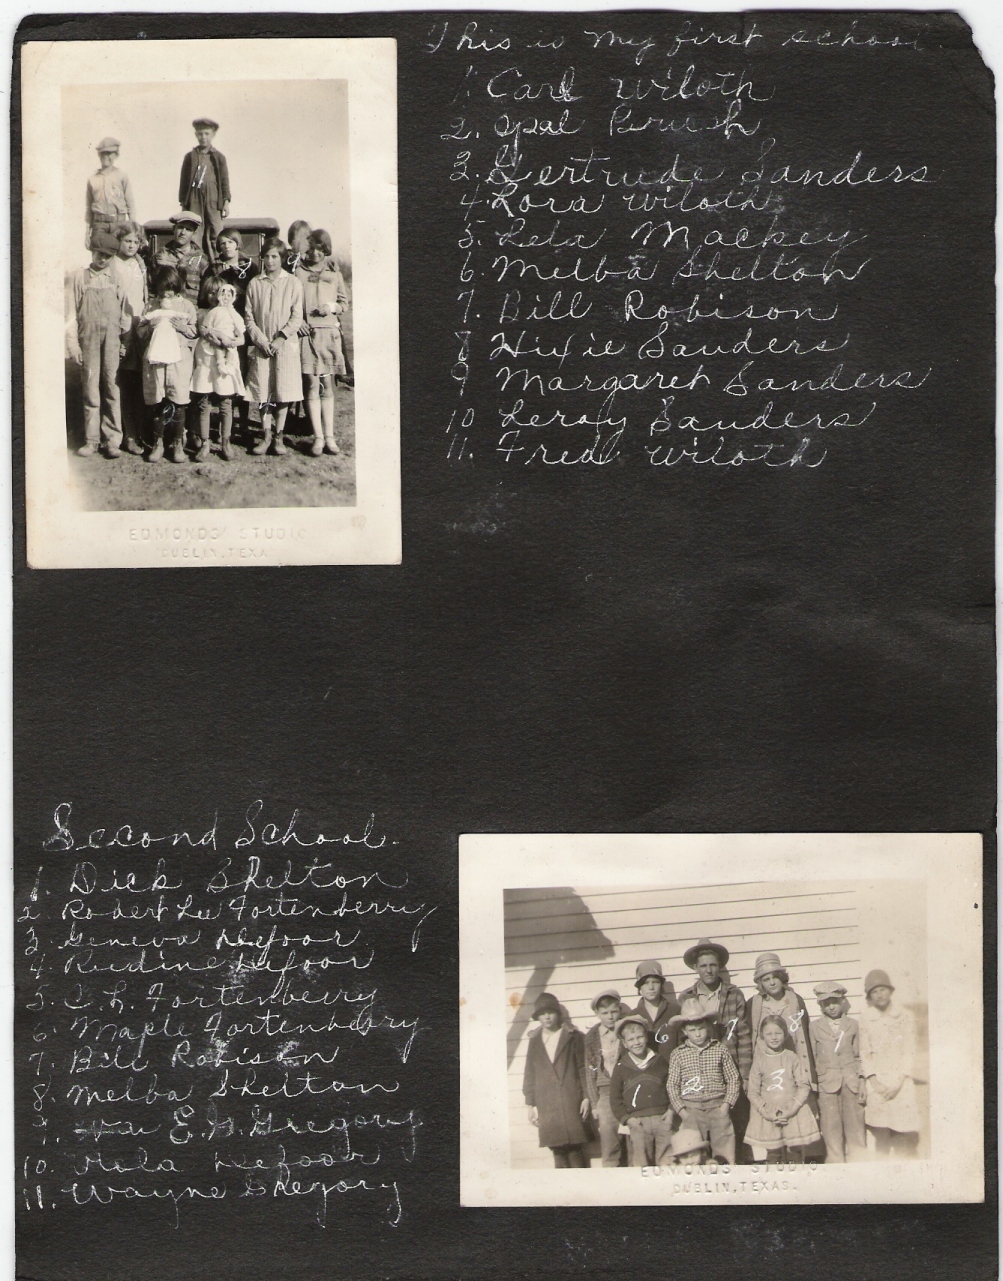 This is my first school
1. Carl Wiloth
2. Opal
3. Gertrude Sanders
4. Lora Wiloth
5. Leta Mackey
6. Melba Shelton
7. Bill Robison
8 Hixie Sanders
9 Margaret Sanders
10 Leroy Sanders
11. Fred Wiloth
11
7 8 9
EDMONDS' STUDIO
DUBLIN, TEXA
Second School.
1. Dick Shelton
2. Robert Lee Fortenberry
3. Geneva Defoor
4. Rudine Defoor
5. C. L. Fortenberry
6. Maple Fortenberry
7. Bill Robison
8. Melba Shelton
9. E. G. Gregory
10. Viola Defoor
11. Wayne Gregory
6 7 8 9
1 2 3
EDMONDS' STUDIO
DUBLIN, TEXAS.